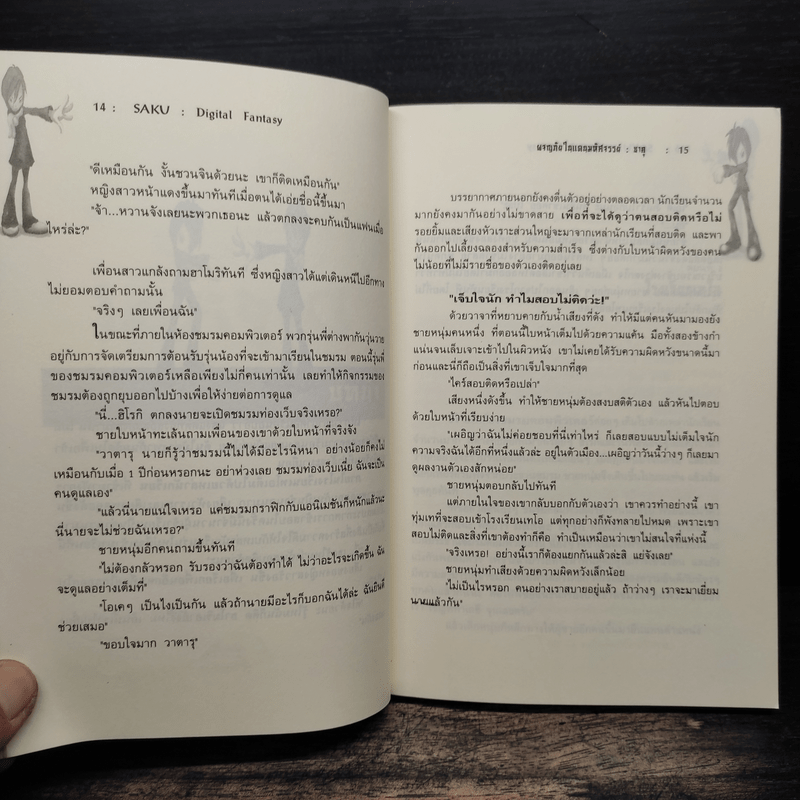 14 : SAKU : Digital Fantasy
"ดีเหมือนกัน งั้นชวนจินด้วยนะ เขาก็ติดเหมือนกัน"
หญิงสาวหน้าแดงขึ้นมาทันทีเมื่อตนได้เอ่ยชื่อนี้ขึ้นมา
"จ้า...หวานจังเลยนะพวกเธอนะ แล้วตกลงจะคบกันเป็นแฟนเมื่อ
ไหร่ล่ะ?"
เพื่อนสาวแกล้งถามฮาโมริทันที ซึ่งหญิงสาวได้แต่เดินหนีไปอีกทาง
ไม่ยอมตอบคำถามนั้น
"จริงๆ เลยเพื่อนฉัน"
ในขณะที่ภายในห้องชมรมคอมพิวเตอร์ พวกรุ่นพี่ต่างพากันวุ่นวาย
อยู่กับการจัดเตรียมการต้อนรับรุ่นน้องที่จะเข้ามาเรียนในชมรม ตอนนี้รุ่นพี่
ของชมรมคอมพิวเตอร์เหลือเพียงไม่กี่คนเท่านั้น เลยทำให้กิจกรรมของ
ชมรมต้องถูกยุบออกไปบ้างเพื่อให้ง่ายต่อการดูแล
"นี่...ฮิโรกิ ตกลงนายจะเปิดชมรมท่องเว็บจริงเหรอ?"
ชายใบหน้าทะเล้นถามเพื่อนของเขาด้วยใบหน้าที่จริงจัง
"วาตารุ นายก็รู้ว่าชมรมนี้ไม่ได้มีอะไรนิหนา อย่างน้อยก็คงไม่
เหมือนกับเมื่อ 1 ปีก่อนหรอกนะ อย่าห่วงเลย ชมรมท่องเว็บเนี่ย ฉันจะเป็น
คนดูแลเอง"
"แล้วนี่นายแน่ใจเหรอ แค่ชมรมกราฟิกกับแอนิเมชันก็หนักแล้วนะ
นี่นายจะไม่ช่วยฉันเหรอ?"
ชายหนุ่มอีกคนถามขึ้นทันที
"ไม่ต้องกลัวหรอก รับรองว่าฉันต้องทำได้ ไม่ว่าอะไรจะเกิดขึ้น ฉัน
จะดูแลอย่างเต็มที่"
"โอเคๆ เป็นไงเป็นกัน แล้วถ้านายมีอะไรก็บอกฉันได้ล่ะ ฉันยินดี
ช่วยเสมอ"
"ขอบใจมาก วาตารุ"
ผจญภัยในแดนมหัศจรรย์ : ซาคุ : 15
บรรยากาศภายนอกยังคงตื่นตัวอยู่อย่างตลอดเวลา นักเรียนจำนวน
มากยังคงมากันอย่างไม่ขาดสาย เพื่อที่จะได้ดูว่าตนสอบติดหรือไม่
รอยยิ้มและเสียงหัวเราะส่วนใหญ่จะมาจากเหล่านักเรียนที่สอบติด และพา
กันออกไปเลี้ยงฉลองสำหรับความสำเร็จ ซึ่งต่างกับใบหน้าผิดหวังของคน
ไม่น้อยที่ไม่มีรายชื่อของตัวเองติดอยู่เลย
"เจ็บใจนัก ทำไมสอบไม่ติดว่ะ!"
ด้วยวาจาที่หยาบคายกับน้ำเสียงที่ดัง ทำให้มีแต่คนหันมามองยัง
ชายหนุ่มคนหนึ่ง ที่ตอนนี้ใบหน้าเต็มไปด้วยความแค้น มือทั้งสองข้างกำ
แน่นจนเล็บเจาะเข้าไปในผิวหนัง เขาไม่เคยได้รับความผิดหวังขนาดนี้มา
ก่อนและนี่ก็ถือเป็นสิ่งที่เขาเจ็บใจมากที่สุด
"ใคร์สอบติดหรือเปล่า"
เสียงหนึ่งดังขึ้น ทำให้ชายหนุ่มต้องสงบสติตัวเอง แล้วหันไปตอบ
ด้วยใบหน้าที่เรียบง่าย
"เผอิญว่าฉันไม่ค่อยชอบที่นี่เท่าไหร่ ก็เลยสอบแบบไม่เต็มใจนัก
ความจริงฉันได้อีกที่หนึ่งแล้วล่ะ อยู่ในตัวเมือง...เผอิญว่าวันนี้ว่างๆ ก็เลยมา
ดูผลงานตัวเองสักหน่อย"
ชายหนุ่มตอบกลับไปทันที
แต่ภายในใจของเขากลับบอกกับตัวเองว่า เขาควรทำอย่างนี้ เขา
ทุ่มเทที่จะสอบเข้าโรงเรียนเทโอ แต่ทุกอย่างก็พังทลายไปหมด เพราะเขา
สอบไม่ติดและสิ่งที่เขาต้องทำก็คือ ทำเป็นเหมือนว่าเขาไม่สนใจที่แห่งนี้
"จริงเหรอ! อย่างนี้เราก็ต้องแยกกันแล้วล่ะสิ แย่จังเลย"
ชายหนุ่มทำเสียงด้วยความผิดหวังเล็กน้อย
"ไม่เป็นไรหรอก คนอย่างเราสบายอยู่แล้ว ถ้าว่างๆ เราจะมาเยี่ยม
นายแล้วกัน"